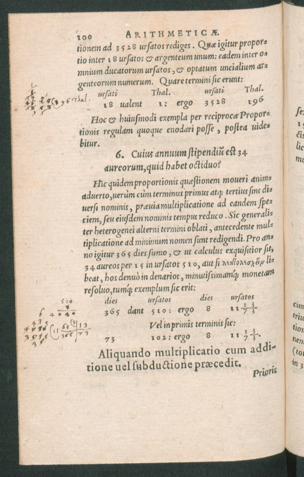 100 ARITHMETICÆ
tionem ad 3528 ursatos rediges. Quæ igitur propor=
tio inter 18 ursatos & argenteum unum: eadem inter o=
mnium ducatorum ursatos, & optatum uncialium ar=
genteorum numerum. Quare termini sic erunt:
ursati Thal. ursati Thal.
18 ualent 1: ergo 3528 196
Hoc & huiusmodi exempla per reciprocæ Propor=
tionis regulam quoque enodari posse, postea uide=
bitur.
6. Cuius annuum stipendiũ est 34
aureorum, quid habet octiduo?
Hic quidem proportionis quæstionem moueri animo
aduerto, uerùm cùm terminus primus atq; tertius sint di=
uersi nominis, præuia multiplicatione ad eandem spe=
ciem, seu eiusdem nominis tempus reduco. Sic generalis=
ter heterogenei alterni termini oblati, antecedente mul=
tiplicatione ad minimum nomen sunt redigendi. Pro an=
no igitur 365 dies sumo, & ut calculus exquisitior sit,
34 aureos per 15 in ursatos 510, aut si
beat, hos denuò in denarios, minutissimamq; monetam
resoluo, tumq; exemplum sic erit:
dies ursatos dies ursatos
365 dant 510: ergo 8 11
Vel in primis terminis sic:
73 102: ergo 8 11
Aliquando multiplicatio cum addi=
tione uel subductione præcedit.
Prioris